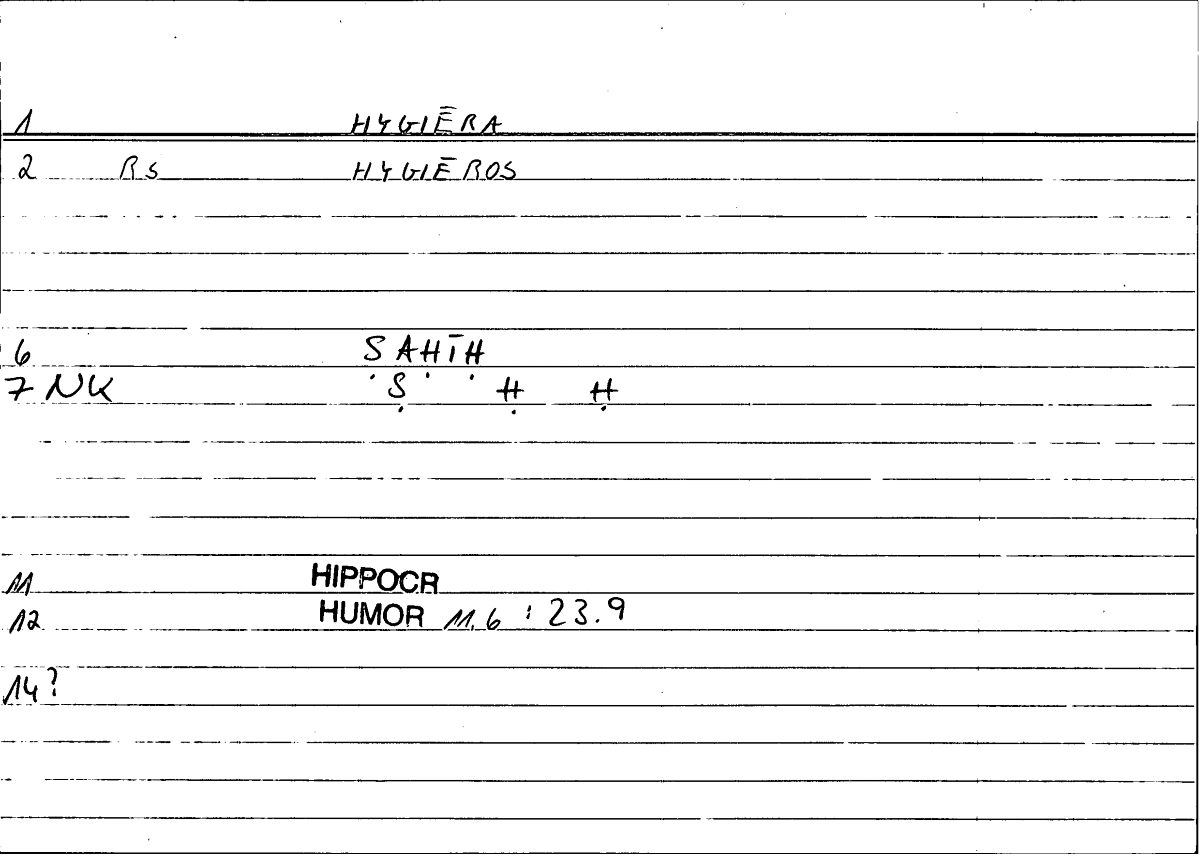 1 HYGIĒRA
2 RS HYGIĒROS
6 ṢAḤĪḤ
7 NK Ṣ Ḥ Ḥ
11 HIPPOCR
12 HUMOR 11.6 : 23.9
14?